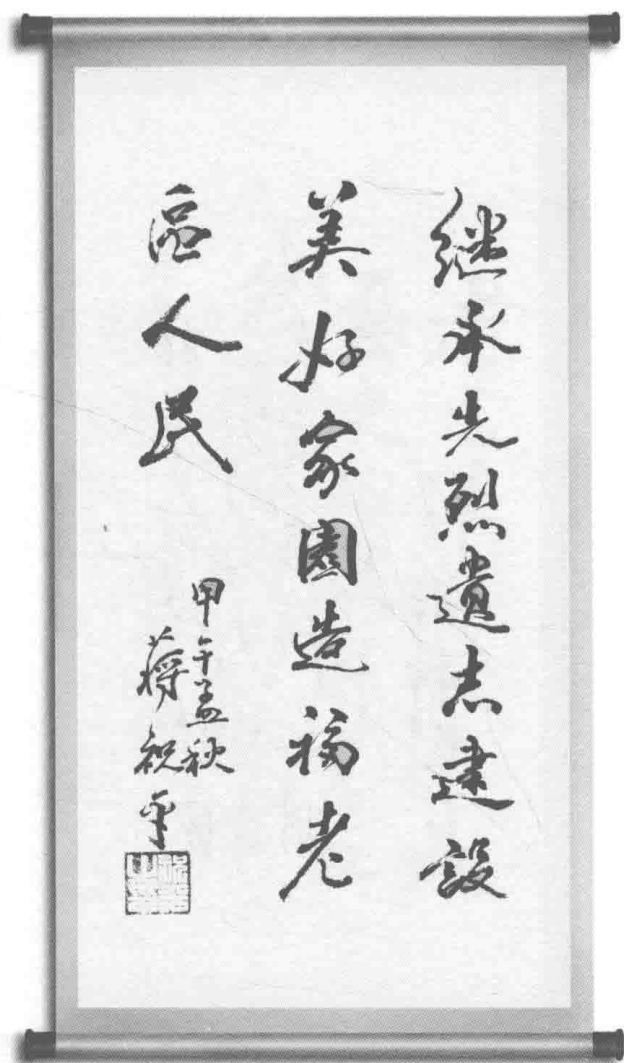 继承先烈遺志建設
美好家園造福老
區人民
甲午孟秋
蒋祝平